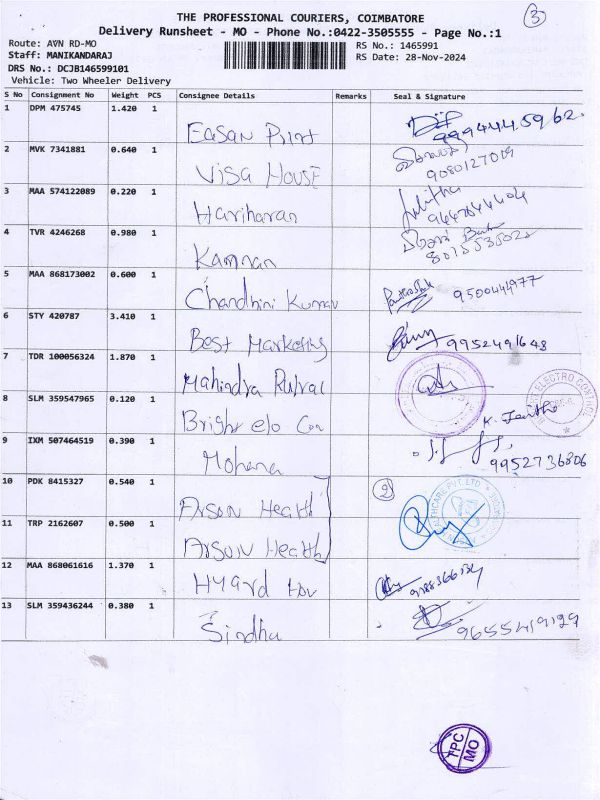 3
THE PROFESSIONAL COURIERS, COIMBATORE
Delivery Runsheet - MO - Phone No.:0422-3505555 - Page No.:1
Route: AVN RD-MO
Staff: MANIKANDARAJ
DRS No.: DCJB146599101
Vehicle: Two Wheeler Delivery
RS No.: 1465991
RS Date: 28-Nov-2024
S No Consignment No Weight PCS Consignee Details Remarks Seal & Signature
1 DPM 475745 1.420 1 Easan Print 9994445962
2 MVK 7341881 0.640 1 Visa House 9080127009
3 MAA 574122089 0.220 1 Hariharan
4 TVR 4246268 0.980 1 Kannan
5 MAA 868173002 0.600 1 Chandhini Kumar 9500444977
6 STY 420787 3.410 1 Best Marketing 9952491648
7 TDR 100056324 1.870 1 Mahindra Rural
8 SLM 359547965 0.120 1 Bright elo Con
9 IXM 507464519 0.390 1 Mohana 9952736806
10 PDK 8415327 0.540 1 Arson Health 2
11 TRP 2162607 0.500 1 Arson Health
12 MAA 868061616 1.370 1
13 SLM 359436244 0.380 1 Sindhu 9655419129
ELECTRO CONTROL
TPC
MO